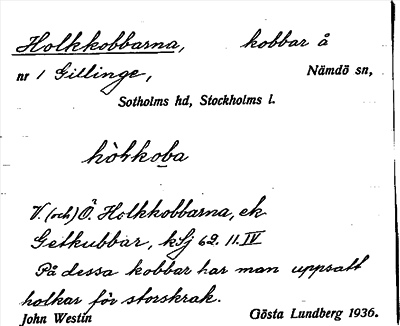 Holkkobbarna, kobbar å
nr 1 Gillinge, Nämdö sn,
Sotholms hd, Stockholms l.
hòɫkoba
V. (och) Ö. Holkkobbarna, ek
Getkubbar, kSj 62. 11. IV
På dessa kobbar har man uppsatt
holkar för storskrak.
John Westin Gösta Lundberg 1936.